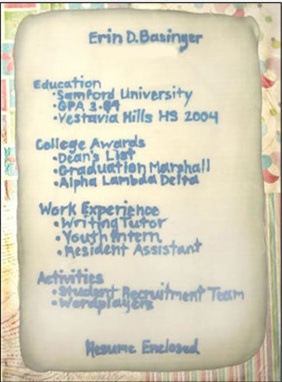 Erin D. Basinger
Education
•Samford University
•GPA 3.
•Vestavia Hills HS 2004
College Awards
•Dean's List
•Graduation Marshall
•Alpha Lambda Delta
Work Experience
•Writing Tutor
•Youth Intern
•Resident Assistant
Activities
•Student Recruitment Team
•Wordplayers
Resume Enclosed